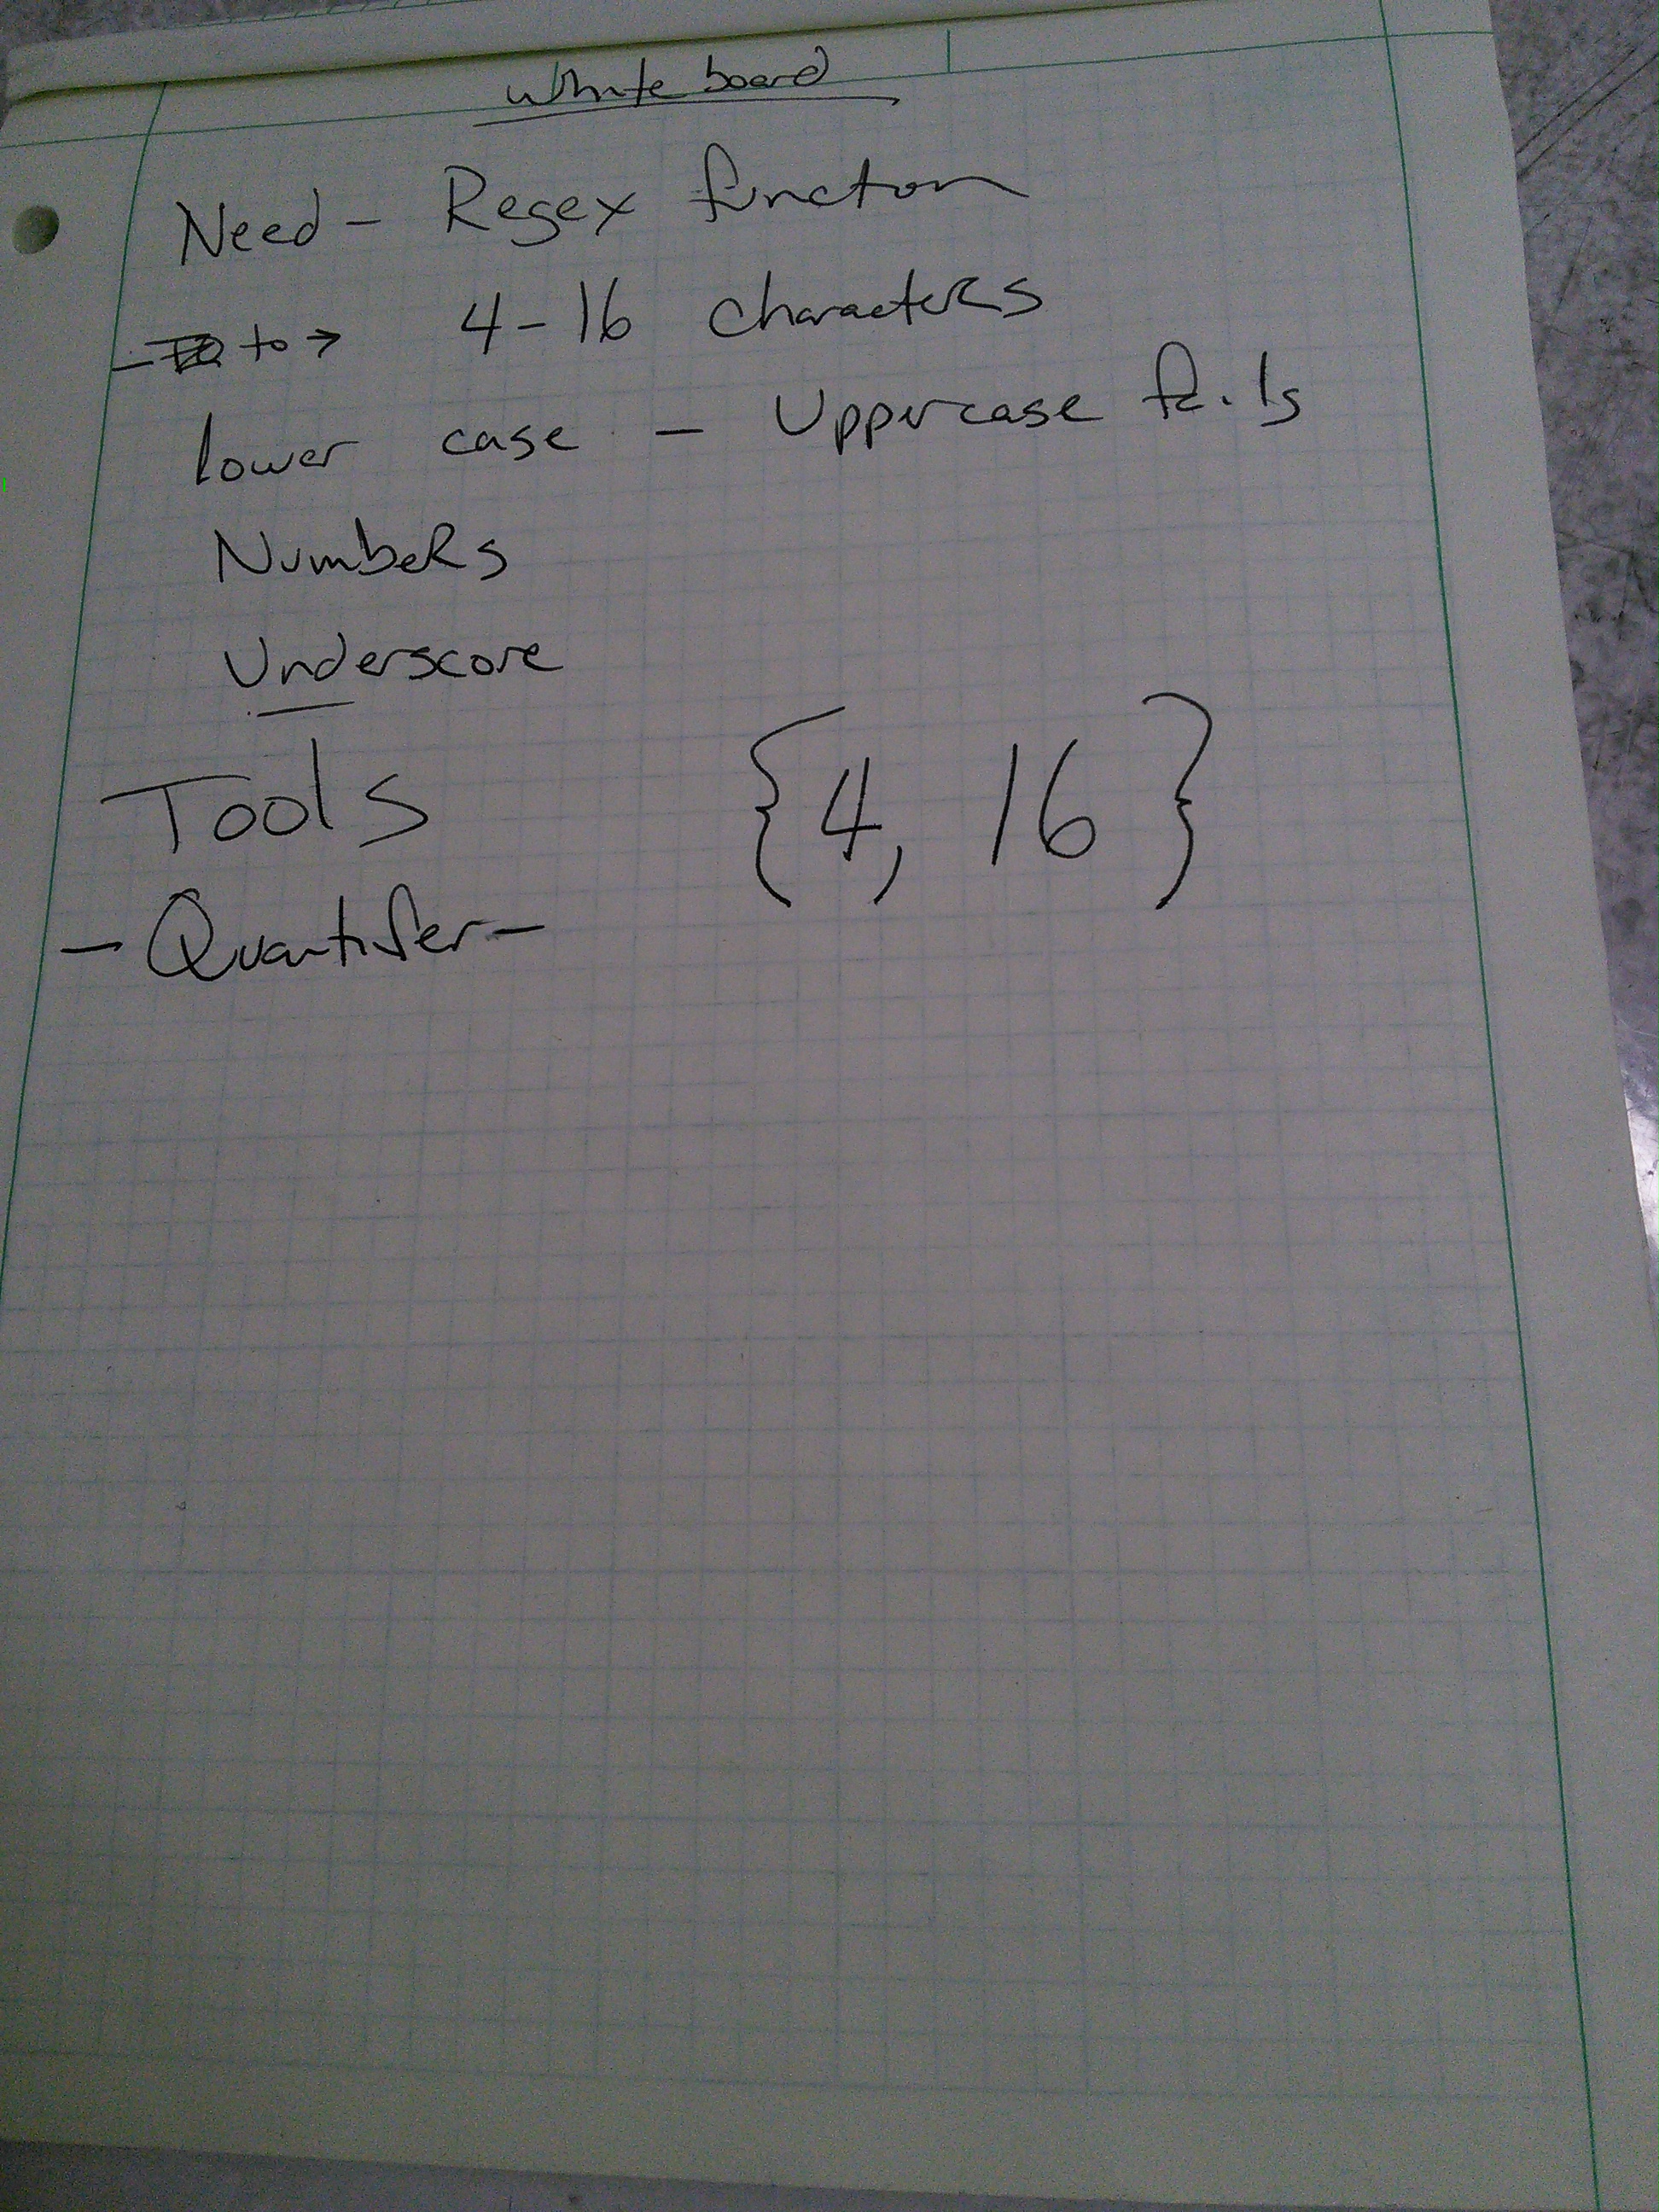 White board
Need - Regex function
- to → 4-16 characters
lower case - Uppercase fails
Numbers
Underscore
Tools {4, 16}
- Quantifer -